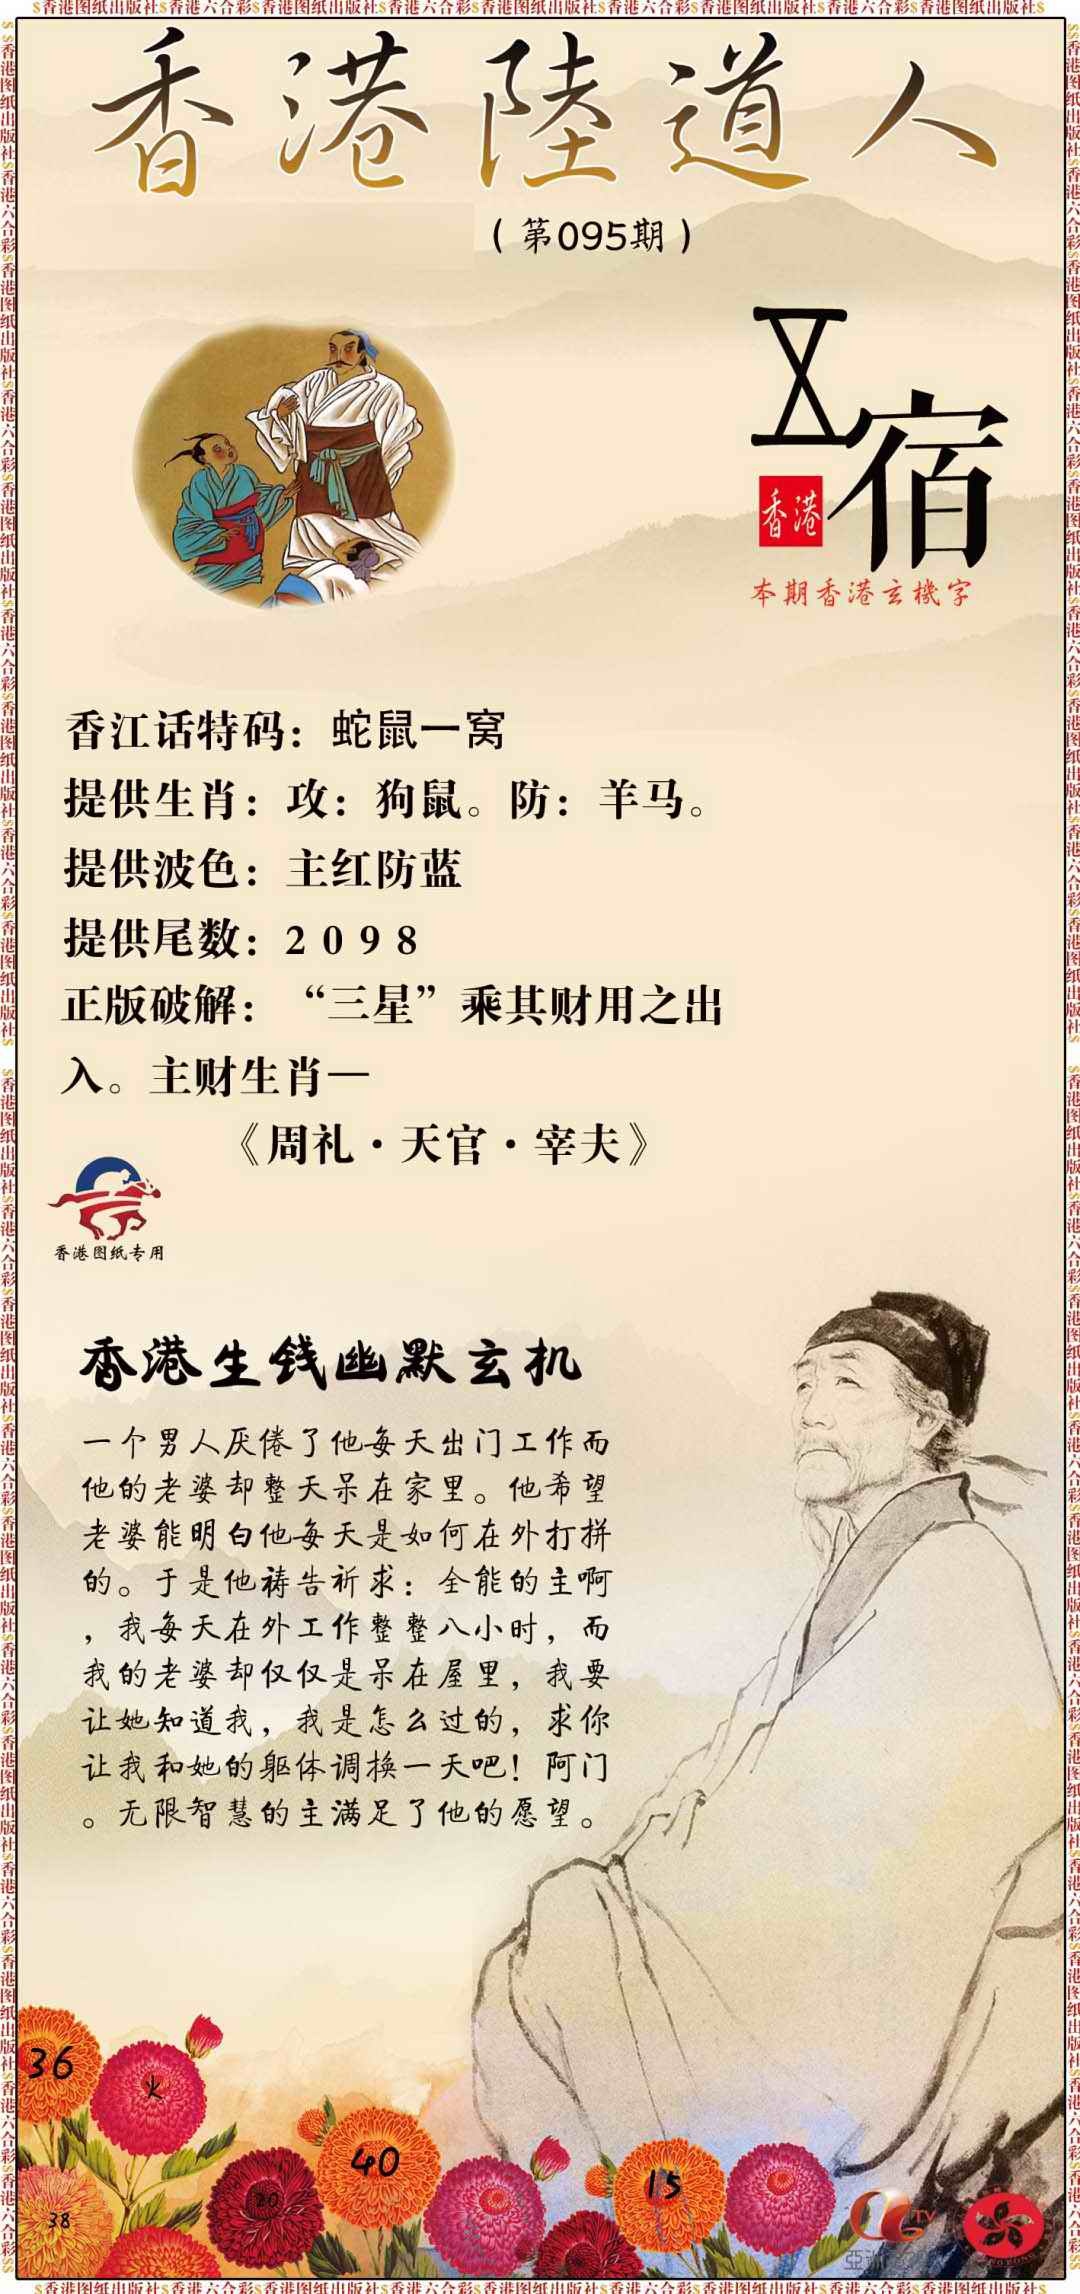 $香港图纸出版社$香港六合彩$香港图纸出版社$香港六合彩$香港图纸出版社$香港六合彩$香港图纸出版社$
香港陸道人
（第095期）
宿
香港
本期香港玄機字
香江话特码：蛇鼠一窝
提供生肖：攻：狗鼠。防：羊马。
提供波色：主红防蓝
提供尾数：2098
正版破解：“三星”乘其财用之出
入。主财生肖—
《周礼·天官·宰夫》
香港图纸专用
香港生钱幽默玄机
一个男人厌倦了他每天出门工作而
他的老婆却整天呆在家里。他希望
老婆能明白他每天是如何在外打拼
的。于是他祷告祈求：全能的主啊
，我每天在外工作整整八小时，而
我的老婆却仅仅是呆在屋里，我要
让她知道我，我是怎么过的，求你
让我和她的躯体调换一天吧！阿门
。无限智慧的主满足了他的愿望。
36
火
40
15
20
38
TV
$香港图纸出版社$香港六合彩$香港图纸出版社$香港六合彩$香港图纸出版社$香港六合彩$香港图纸出版社$